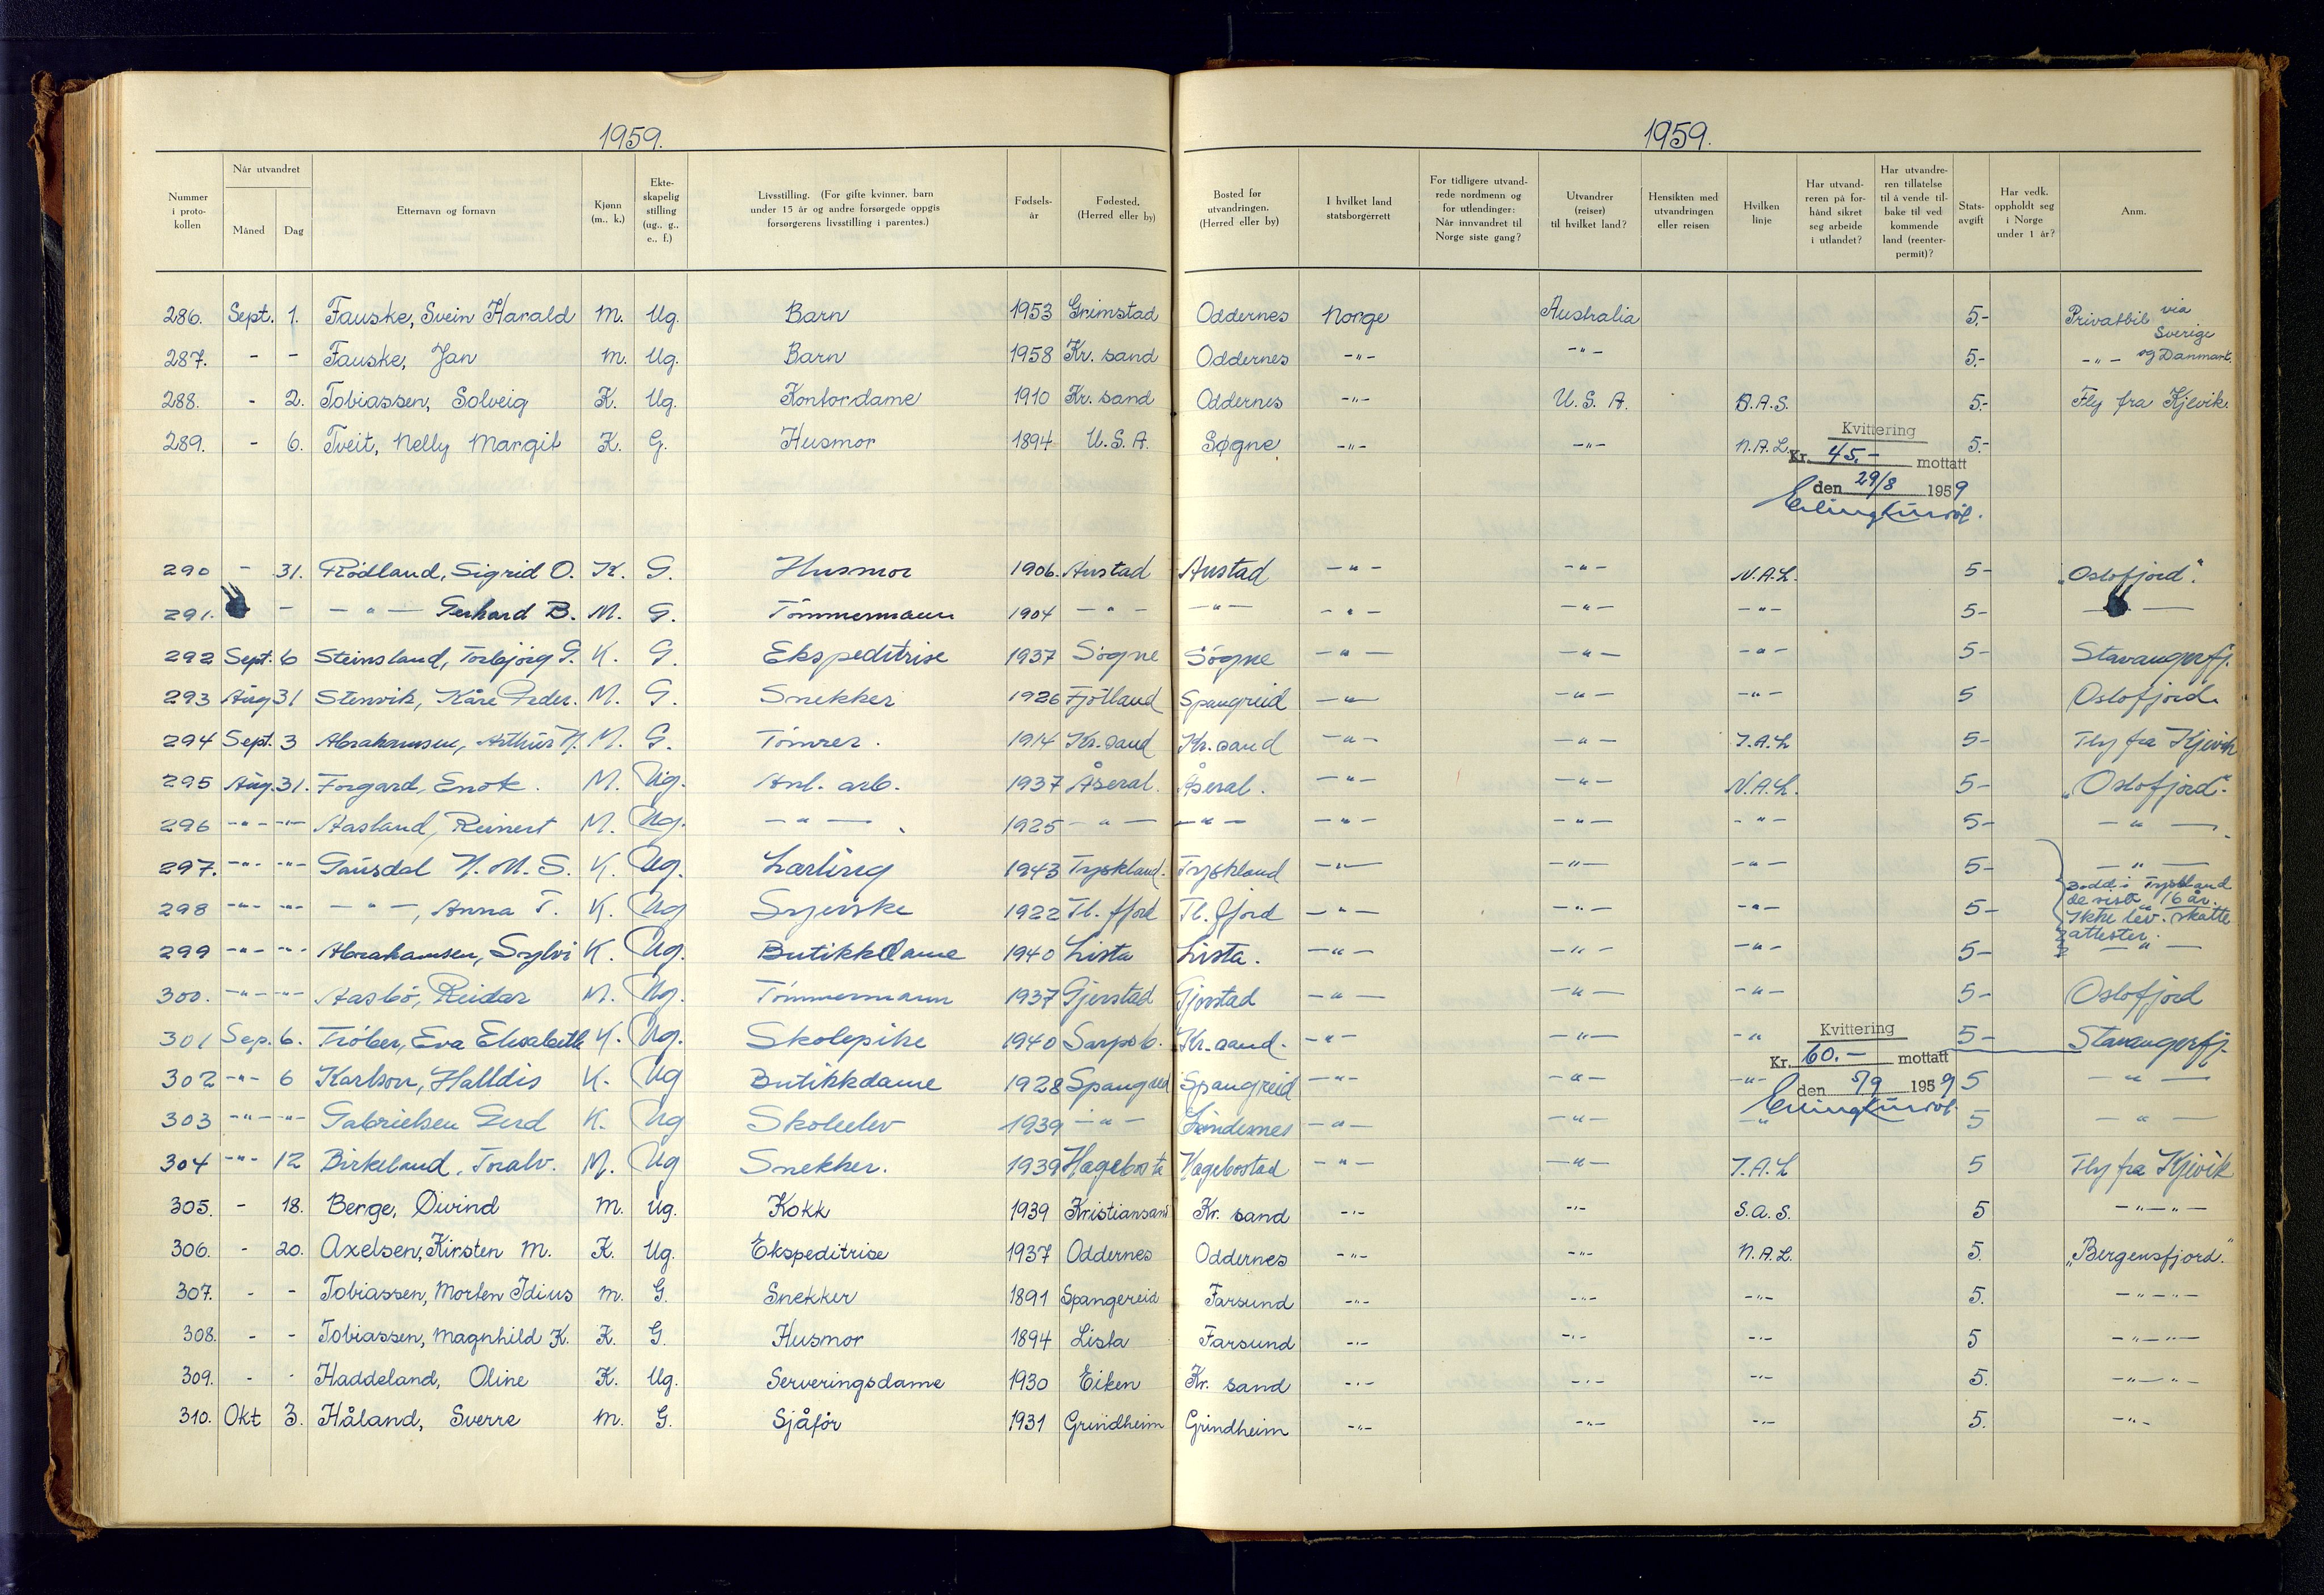 1959.
1959.
Nummer i protokollen | Når utvandret Måned | Dag | Etternavn og fornavn | Kjønn (m., k.) | Ekteskapelig stilling (ug., g., e., f.) | Livsstilling. (For gifte kvinner, barn under 15 år og andre forsørgede oppgis forsørgerens livsstilling i parentes.) | Fødselsår | Fødested. (Herred eller by) | Bosted før utvandringen. (Herred eller by) | I hvilket land statsborgerrett | For tidligere utvandrede nordmenn og for utlendinger: Når innvandret til Norge siste gang? | Utvandrer (reiser) til hvilket land? | Hensikten med utvandringen eller reisen | Hvilken linje | Har utvandreren på forhånd sikret seg arbeide i utlandet? | Har utvandreren tillatelse til å vende tilbake til vedkommende land (reenterpermit)? | Statsavgift | Har vedk. oppholdt seg i Norge under 1 år? | Anm.
286. Sept. 1. Fauske, Svein Harald m. Ug. Barn 1953 Grimstad Oddernes Norge Australia 5,- Privatbil via Sverige
287. - - Fauske, Jan m. Ug. Barn 1958 Kr. sand Oddernes -"- -"- 5.- -"- og Danmark.
288. - 2. Tobiassen, Solveig K. Ug. Kontordame 1910 Kr. sand Oddernes -"- U.S.A. B.A.S. 5.- Fly fra Kjevik.
289. - 6. Tveit, Nelly Margit K. G. Husmor 1894 U.S.A. Søgne -"- -"- N.A.L. 5.-
Kvittering
Kr. 45.- mottatt
den 29/8 1959
290 - 31. Rödland, Sigrid O. K. G. Husmor 1906. Austad Austad -"- -"- N.A.L. 5- "Oslofjord".
291. - -"- Gerhard B. M. G. Tömmermann 1904 -"- -"- -"- -"- -"- 5-
292 Sept. 6 Steinsland, Torbjörg G. K. G. Ekspeditrise 1937 Sögne Sögne -"- -"- -"- 5- Stavangerfj.
293 Aug 31 Stenvik, Kåre Peder. M. G. Snekker 1926 Fjotland Spangreid -"- -"- -"- 5 Oslofjord.
294 Sept. 3 Abrahamsen, Arthur N. M. G. Tömrer. 1914 Kr. sand Kr. sand -"- -"- I.A.L 5- Fly fra Kjevik
295 Aug. 31. Forgard, Enok. M. Ug. Anl. arb. 1937 Åseral. Åseral. -"- -"- N.A.L. 5- "Oslofjord".
296 -"- -"- Aasland, Reinert M. Ug. -"- 1925 -"- -"- -"- -"- -"- 5- -"-
297. -"- -"- Gausdal N. M. S. K. Ug. Lærling 1943 Tyskland. Tyskland -"- -"- -"- 5- -"-
298 -"- -"- -"-, Anna T. K. Ug Syerske 1922 Fl. fjord Fl. fjord -"- -"- -"- 5- Bodd i Tyskland de siste 16 år. Ikke lev. skatteattester.
299 -"- -"- Abrahamsen, Sylvi K. Ug. Butikkdame 1940 Lista Lista. -"- -"- -"- 5- -"-
300. -"- -"- Aasbö, Reidar M. Ug. Tömmermann 1937 Gjerstad Gjerstad -"- -"- -"- 5- Oslofjord
301 Sep. 6. Tröber, Eva Elisabeth K. Ug. Skolepike 1940 Sarpsb. Kr. sand. -"- -"- -"- 5- Stavangerfj.
Kvittering
Kr. 60.- mottatt
302 -"- 6 Karlson, Halldis K. Ug Butikkdame 1928 Spangreid Spangreid -"- -"- -"- 5 -"-
den 5/9 1959
303 -"- -"- Gabrielsen Gerd K. Ug Skoleelev 1939 -"- Lindesnes -"- -"- -"- 5 -"-
304 -"- 12 Birkeland, Toralv. M. Ug Snekker. 1939 Hægebosta Hægebostad -"- -"- I.A.L 5 Fly fra Kjevik
305. - 18. Berge, Øivind m. Ug. Kokk 1939 Kristiansand Kr. sand -"- -"- S.A.S. 5 -"-"-
306. - 20. Axelsen, Kirsten M. K. Ug. Ekspeditrise 1937 Oddernes Oddernes -"- -"- N.A.L. 5. "Bergensfjord."
307. - - Tobiassen, Morten Idius m. G. Snekker 1891 Spangereid Farsund -"- -"- -"- 5. -"-"-
308. - - Tobiassen, Magnhild K. K. G. Husmor 1894 Lista Farsund -"- -"- -"- 5 -"-"-
309. - - Haddeland, Oline K. Ug. Serveringsdame 1930 Eiken Kr. sand -"- -"- -"- 5. -"-"-
310. Okt 3. Håland, Sverre m. G. Sjåför 1931 Grindheim Grindheim -"- -"- -"- 5. -"-